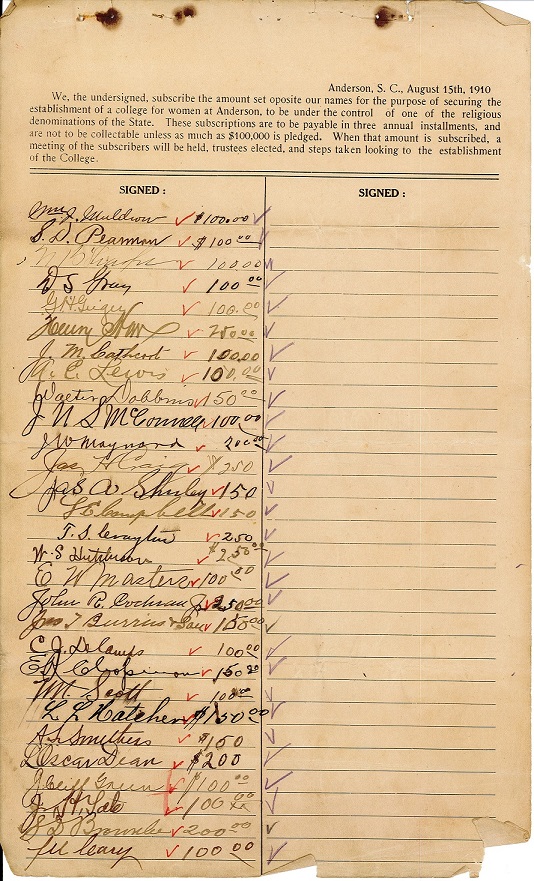 Anderson, S. C., August 15th, 1910
We, the undersigned, subscribe the amount set oposite our names for the purpose of securing the
establishment of a college for women at Anderson, to be under the control of one of the religious
denominations of the State. These subscriptions are to be payable in three annual installments, and
are not to be collectable unless as much as $100,000 is pledged. When that amount is subscribed, a
meeting of the subscribers will be held, trustees elected, and steps taken looking to the establishment
of the College.
SIGNED :
SIGNED :
Wm J. Muldrow $100.00
S. D. Pearman $100 00
100.00
D S Gray 100 00
G H Geiger 100.00
Henry 250.00
J. M. Cathcart 100.00
A. C. Lewis 100.00
Walter Dobbins 150 00
J N S McConnell 100.00
J W Maynard 200 00
Jas H Craig $250
Jas A Shirley 150
L E Campbell 150
T. S. Crayton 250
W. S. Hutchison $250 00
E W Masters 100 00
John R. Cochran Jr 250 00
Jno T Burriss & Son 150 00
C. J. 100 00
150 00
Scott 100 00
L L Hatcher $150 00
A S Smethers $150
L Oscar Dean $200
J Cliff Green $100 00
J. H. Tate 100 xx
S D Brownlee 200 00
Geary 100 00